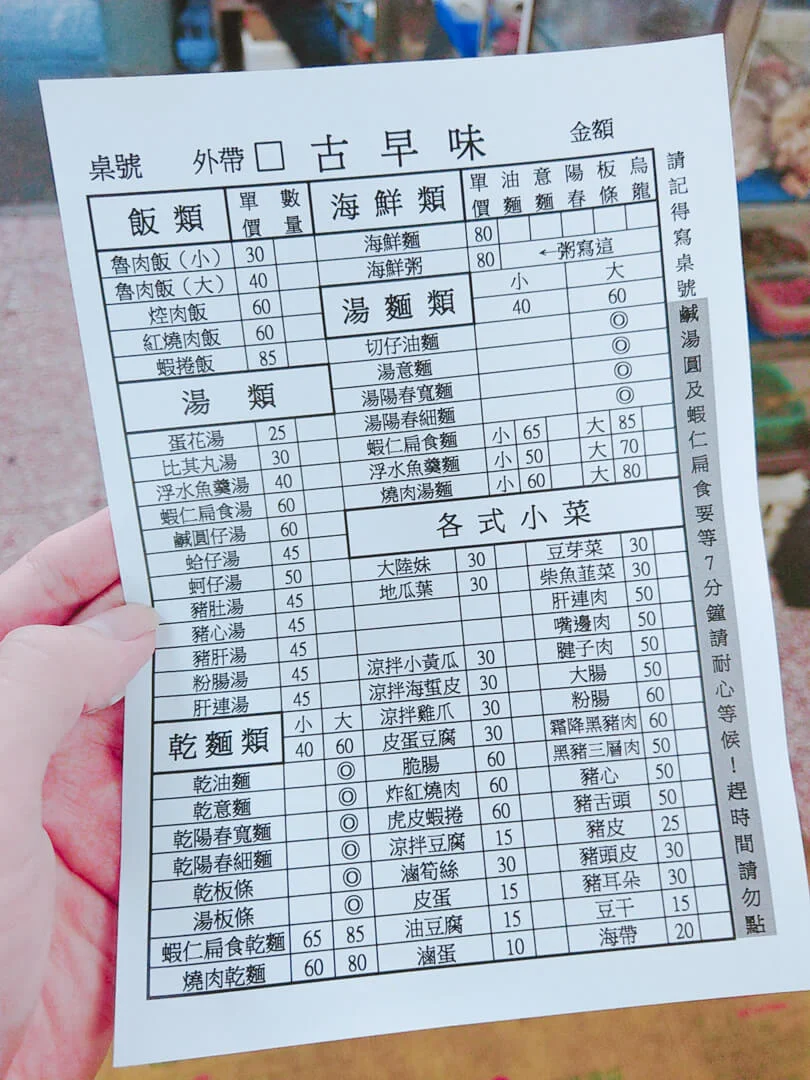 桌號 外帶□ 古早味 金額
飯類 單價 數量
魯肉飯（小） 30
魯肉飯（大） 40
焢肉飯 60
紅燒肉飯 60
蝦捲飯 85
湯類
蛋花湯 25
比其丸湯 30
浮水魚羹湯 40
蝦仁扁食湯 60
鹹圓仔湯 60
蛤仔湯 45
蚵仔湯 50
豬肚湯 45
豬心湯 45
豬肝湯 45
粉腸湯 45
肝連湯 45
乾麵類 小 大
40 60
乾油麵 ◎
乾意麵 ◎
乾陽春寬麵 ◎
乾陽春細麵 ◎
乾板條 ◎
湯板條 ◎
蝦仁扁食乾麵 65 85
燒肉乾麵 60 80
海鮮類 單價 油麵 意麵 陽春 板條 烏龍
海鮮麵 80
海鮮粥 80 ←粥寫這
湯麵類 小 大
40 60
切仔油麵 ◎
湯意麵 ◎
湯陽春寬麵 ◎
湯陽春細麵 ◎
蝦仁扁食麵 小 65 大 85
浮水魚羹麵 小 50 大 70
燒肉湯麵 小 60 大 80
各式小菜
大陸妹 30
地瓜葉 30
涼拌小黃瓜 30
涼拌海蜇皮 30
涼拌雞爪 30
皮蛋豆腐 30
脆腸 60
炸紅燒肉 60
虎皮蝦捲 60
涼拌豆腐 15
滷筍絲 30
皮蛋 15
油豆腐 15
滷蛋 10
豆芽菜 30
柴魚韮菜 30
肝連肉 50
嘴邊肉 50
腱子肉 50
大腸 50
粉腸 60
霜降黑豬肉 60
黑豬三層肉 50
豬心 50
豬舌頭 50
豬皮 25
豬頭皮 30
豬耳朵 30
豆干 15
海帶 20
請記得寫桌號鹹湯圓及蝦仁扁食要等7分鐘請耐心等候！趕時間請勿點